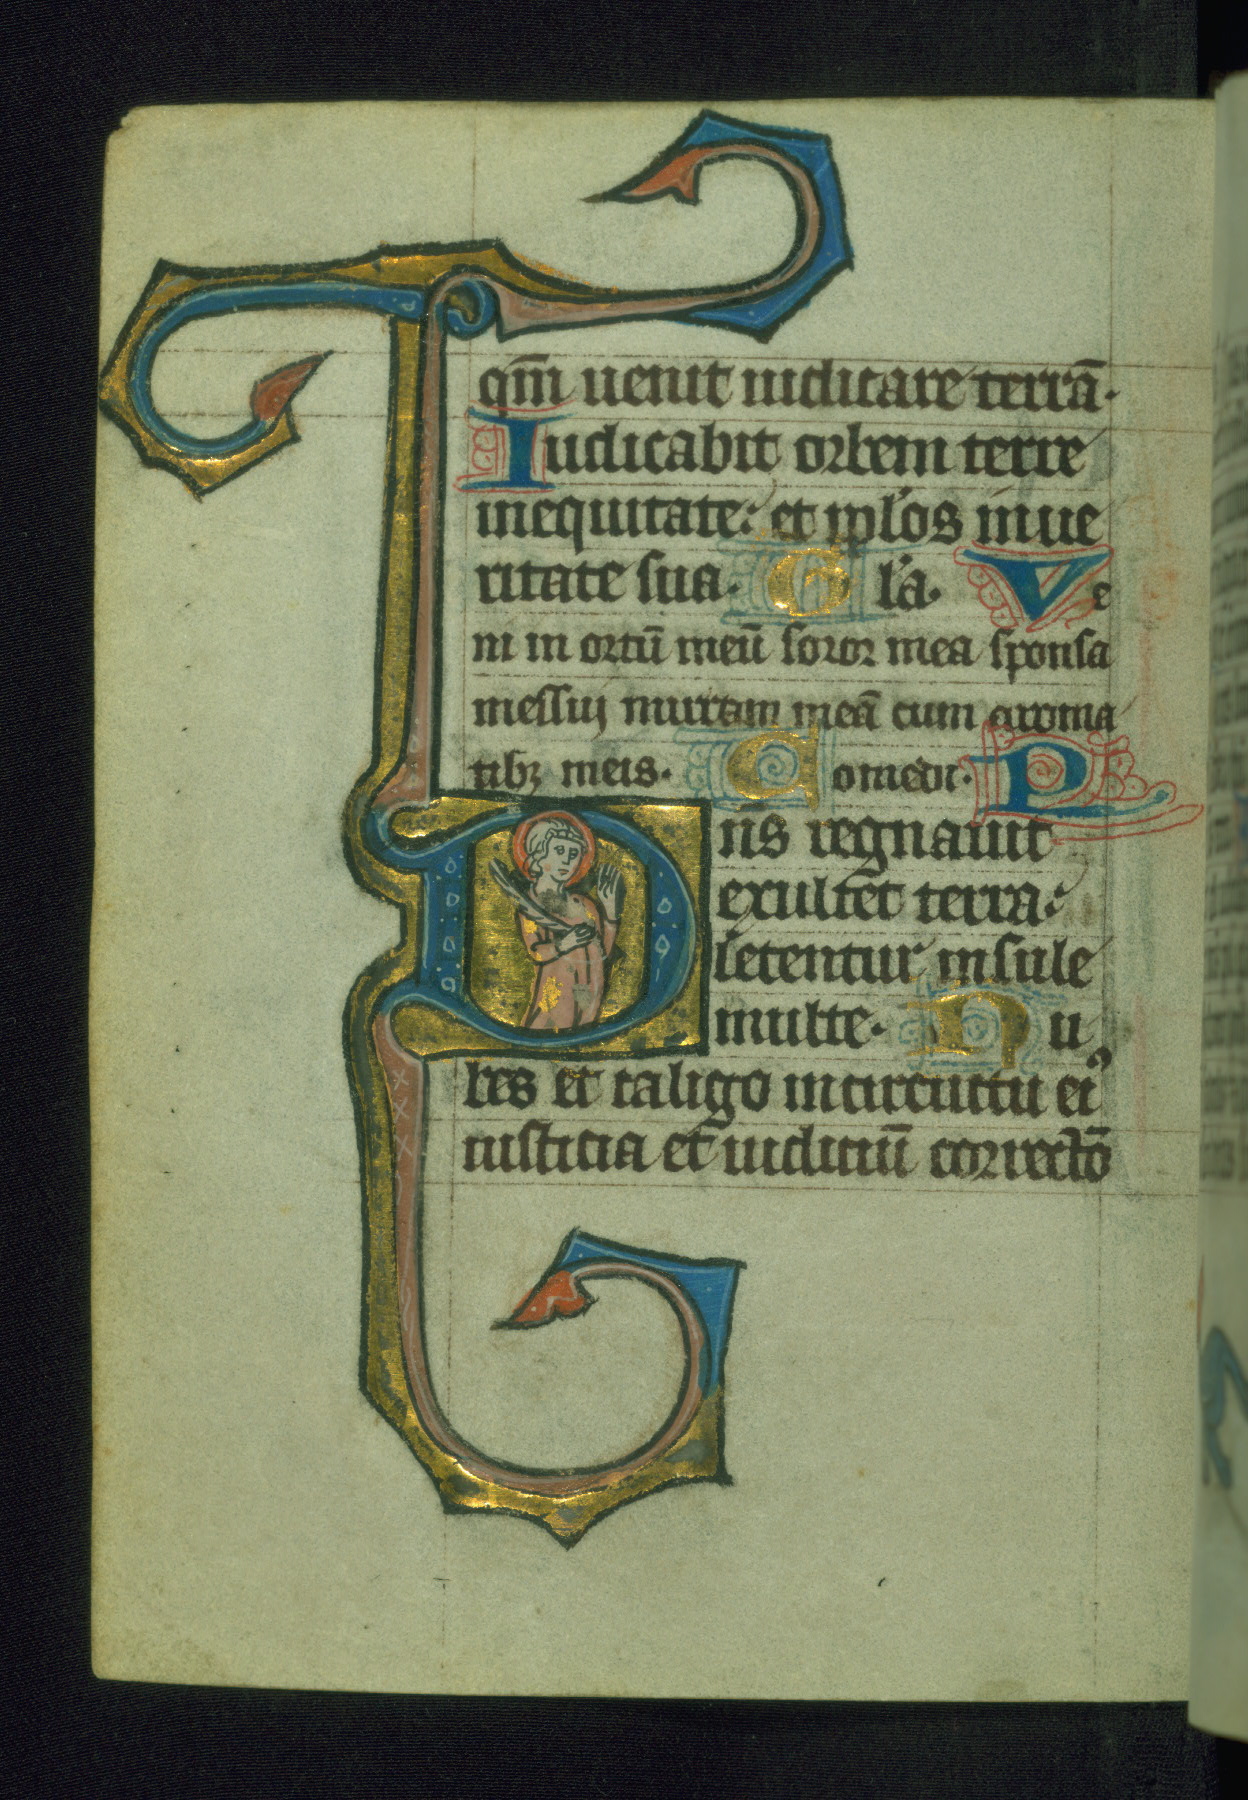 qm̄ uenit iudicare terrā.
Iudicabit orbem terre
inequitate: et ip̄los inue
ritate sua. Gla. Ve
ni in ortū meū soror mea sponsa
messuj mirram meā cum aroma
tibꝫ meis. Comedi. P
Dn̄s regnauit
exultet terra:
letentur insule
multe. Nu
bes et caligo incircuitu eiꝰ
iusticia et iudiciū correctō